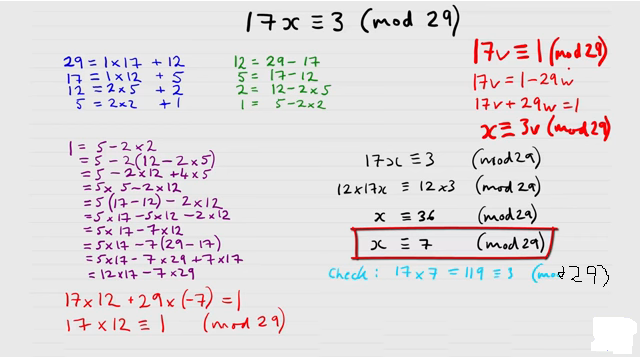 17x ≡ 3 (mod 29)
29 = 1×17 + 12
17 = 1×12 + 5
12 = 2×5 + 2
5 = 2×2 + 1
12 = 29 - 17
5 = 17 - 12
2 = 12 - 2×5
1 = 5 - 2×2
17v ≡ 1 (mod 29)
17v = 1 - 29w
17v + 29w = 1
x ≡ 3v (mod 29)
1 = 5 - 2×2
= 5 - 2(12 - 2×5)
= 5 - 2×12 + 4×5
= 5×5 - 2×12
= 5(17 - 12) - 2×12
= 5×17 - 5×12 - 2×12
= 5×17 - 7×12
= 5×17 - 7(29 - 17)
= 5×17 - 7×29 + 7×17
= 12×17 - 7×29
17×12 + 29×(-7) = 1
17×12 ≡ 1 (mod 29)
17x ≡ 3 (mod 29)
12×17x ≡ 12×3 (mod 29)
x ≡ 36 (mod 29)
x ≡ 7 (mod 29)
Check: 17×7 = 119 ≡ 3 (mod 29)